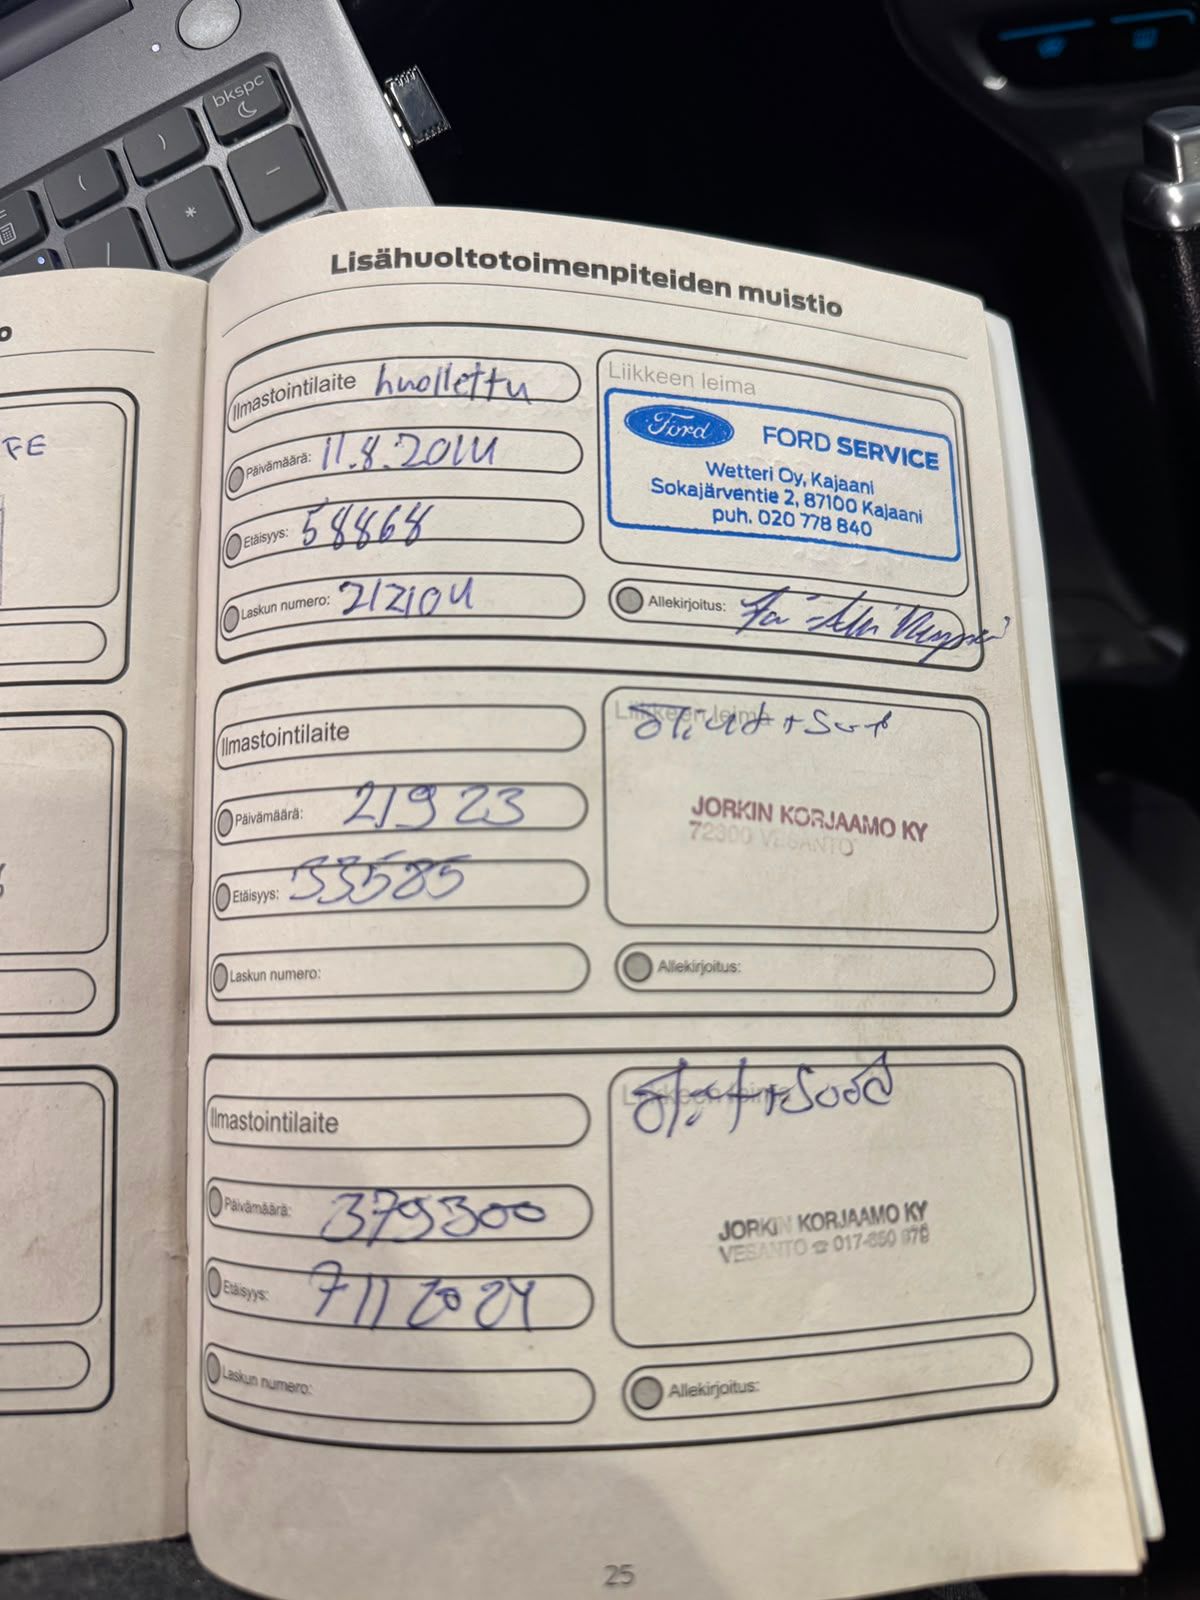 bkspc
)
(
-
*
/
o
FE
Lisähuoltotoimenpiteiden muistio
Ilmastointilaite huollettu
Päivämäärä: 11.8.2014
Etäisyys: 58868
Laskun numero: 212104
Liikkeen leima
Ford FORD SERVICE
Wetteri Oy, Kajaani
Sokajärventie 2, 87100 Kajaani
puh. 020 778 840
Allekirjoitus:
Ilmastointilaite
Päivämäärä: 21 9 23
Etäisyys: 33585
Laskun numero:
Liikkeen leima
JORKIN KORJAAMO KY
72300 VESANTO
Allekirjoitus:
Ilmastointilaite
Päivämäärä: 379300
Etäisyys: 7 11 2024
Laskun numero:
Liikkeen leima
JORKIN KORJAAMO KY
VESANTO ☎ 017-
Allekirjoitus:
25